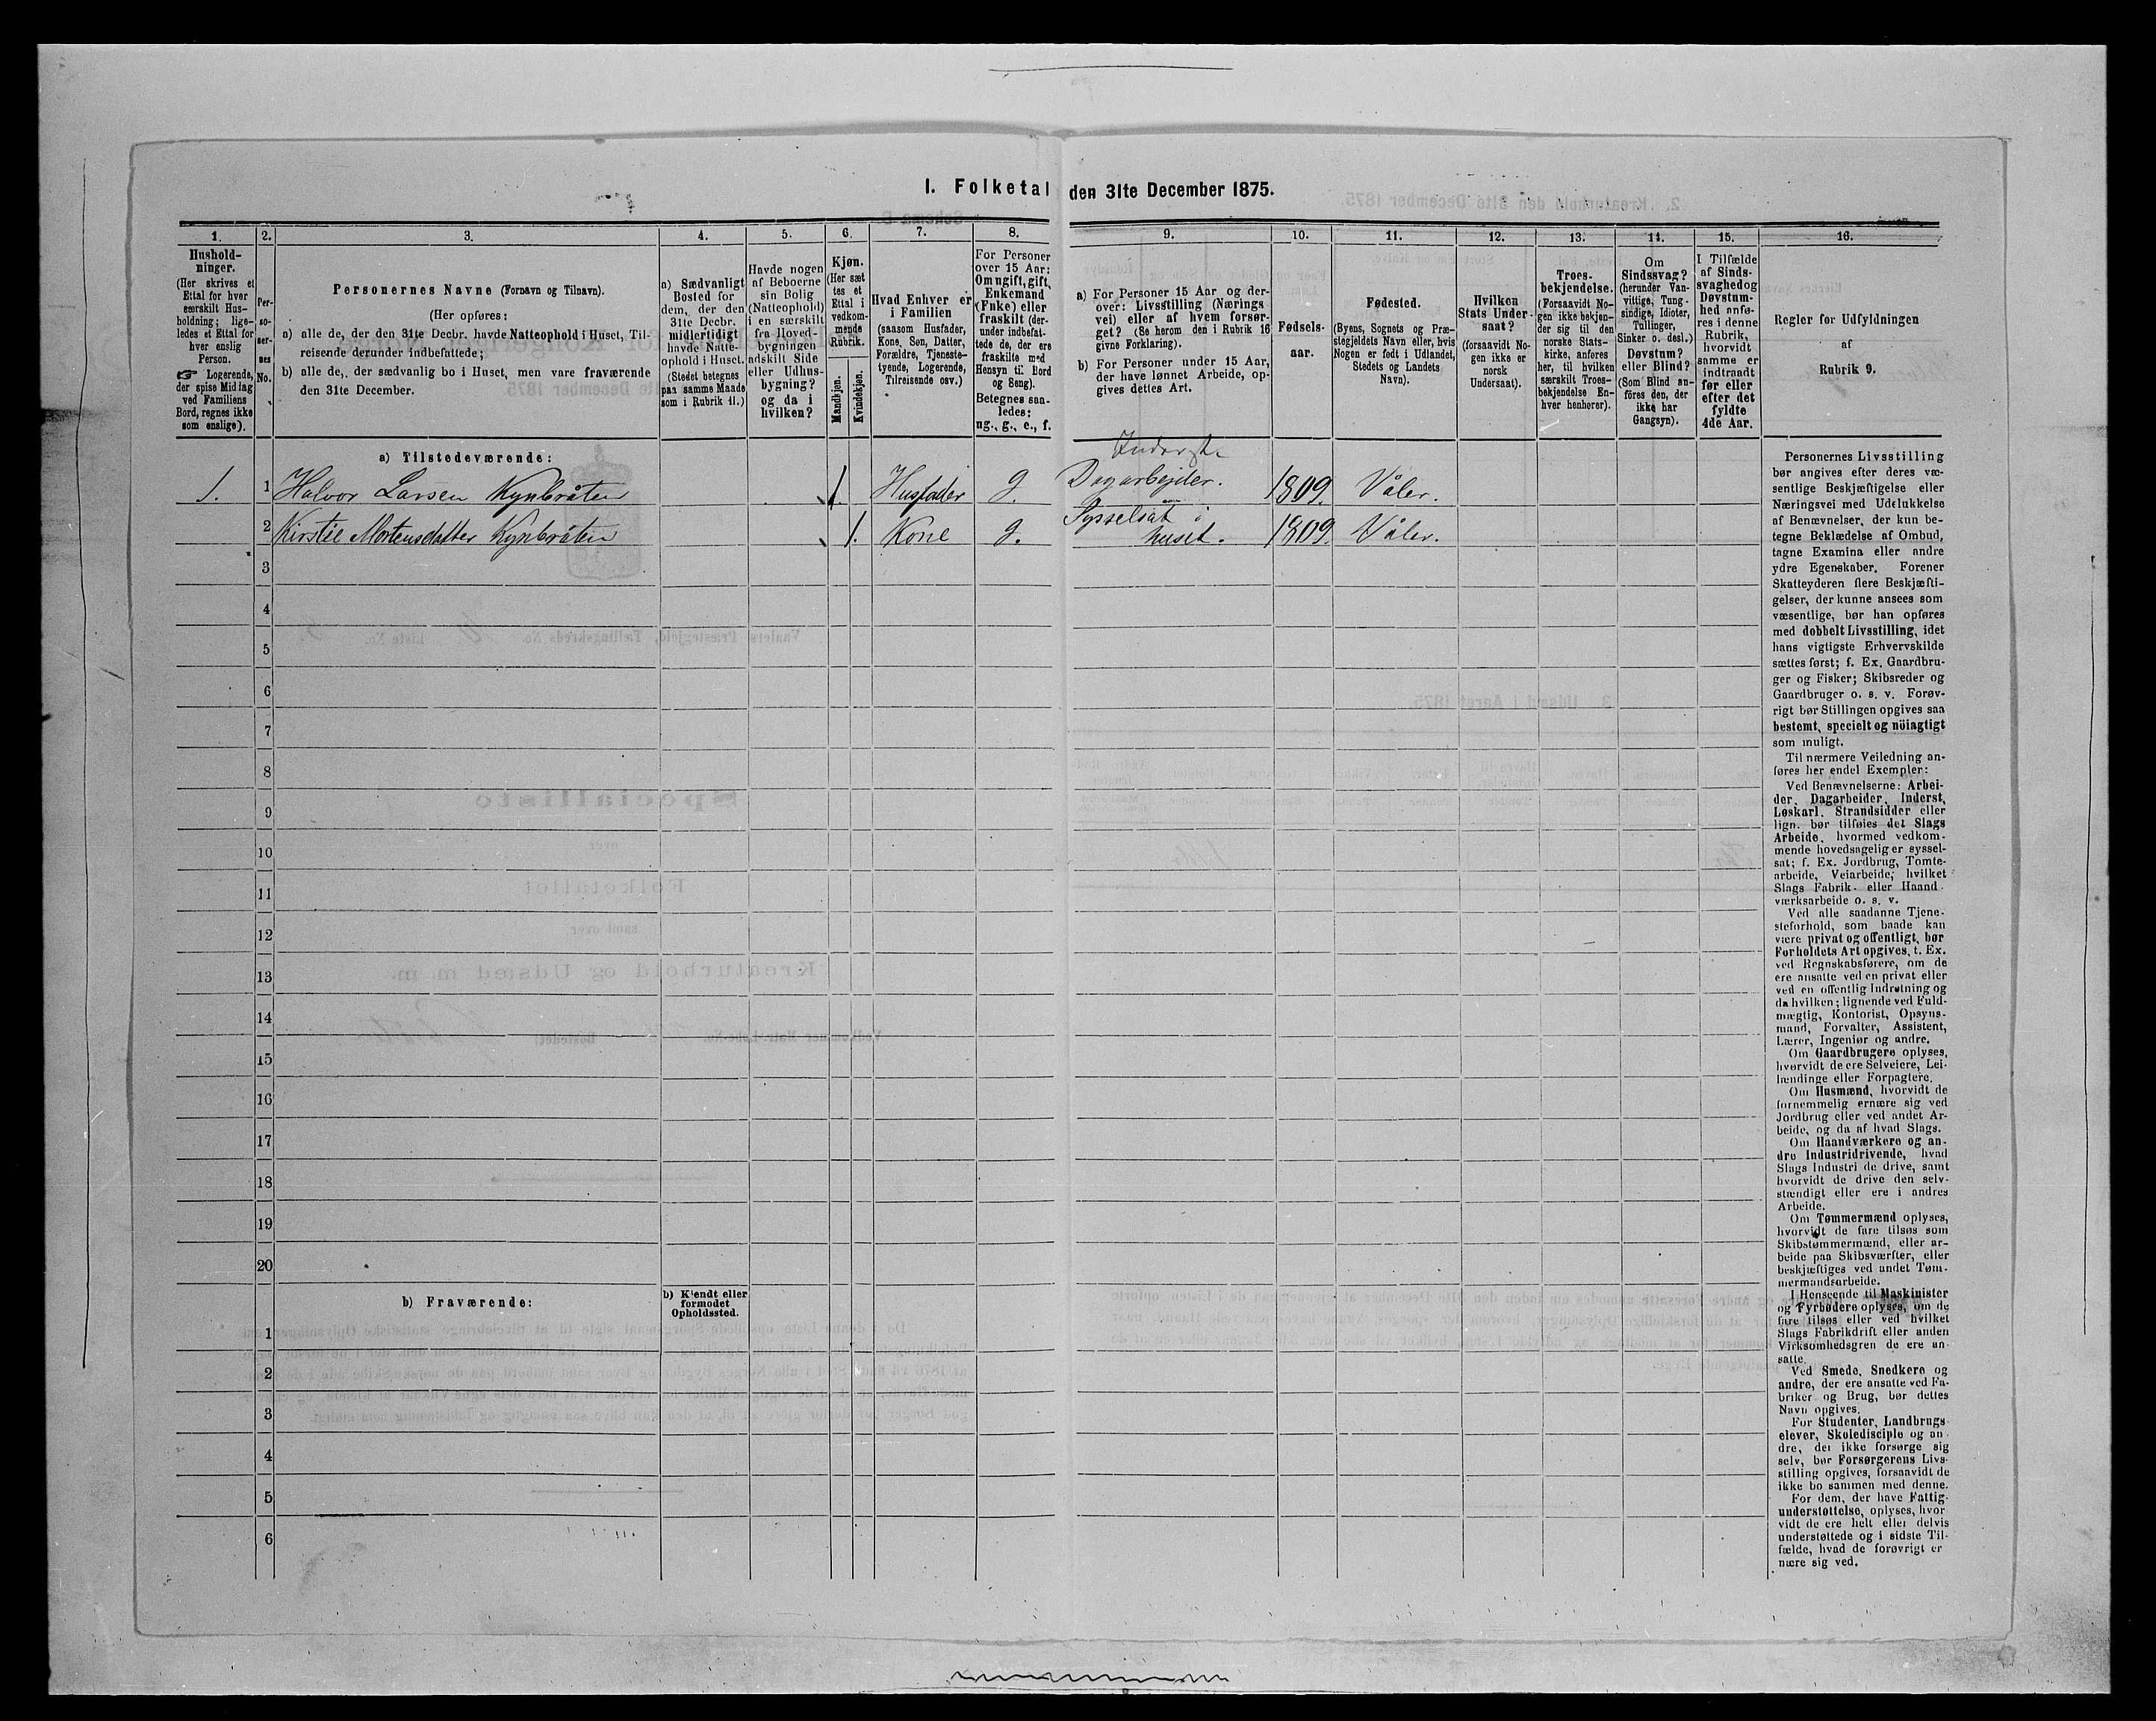 I. Folketal den 31te December 1875.
1.
2.
3.
4.
5.
6.
7.
8.
9.
10.
11.
12.
13.
14.
15.
16.
Hushold-
ninger.
(Her skrives et
Ettal for hver
særskilt Hus-
holdning; lige-
ledes et Ettal for
hver enslig
Person.
☞ Logerende,
der spise Middag
ved Familiens
Bord, regnes ikke
som enslige).
Per-
so-
ner-
nes
No.
Personernes Navne (Fornavn og Tilnavn).
(Her opføres:
a) alle de, der den 31te Decbr. havde Natteophold i Huset, Til-
reisende derunder indbefattede;
b) alle de, der sædvanlig bo i Huset, men vare fraværende
den 31te December.
a) Sædvanligt
Bosted for
dem, der den
31te Decbr.
midlertidigt
havde Natte-
ophold i Huset.
(Stedet betegnes
paa samme Maade
som i Rubrik 11.)
Havde nogen
af Beboerne
sin Bolig
(Natteophold)
i en særskilt
fra Hoved-
bygningen
adskilt Side
eller Udhus-
bygning?
og da i
hvilken?
Kjøn.
(Her sæt
tes et
Ettal i
vedkom-
mende
Rubrik.
Mandkjøn.
Kvindekjøn.
Hvad Enhver er
i Familien
(saasom Husfader,
Kone, Søn, Datter,
Forældre, Tjeneste-
tyende, Logerende,
Tilreisende osv.)
For Personer
over 15 Aar:
Om ugift, gift,
Enkemand
(Enke) eller
fraskilt (der-
under indbefat-
tede de, der ere
fraskilte med
Hensyn til Bord
og Seng).
Betegnes saa-
ledes:
ug., g., e., f.
a) For Personer 15 Aar og der-
over: Livsstilling (Nærings
vei) eller af hvem forsør-
get? (Se herom den i Rubrik 16
givne Forklaring).
b) For Personer under 15 Aar,
der have lønnet Arbeide, op-
gives dettes Art.
Fødsels-
aar.
Fødested.
(Byens, Sognets og Præ-
stegjeldets Navn eller, hvis
Nogen er født i Udlandet,
Stedets og Landets
Navn).
Hvilken
Stats Under-
saat?
(forsaavidt No-
gen ikke er
norsk
Undersaat).
Troes-
bekjendelse.
(Forsaavidt No-
gen ikke bekjen-
der sig til den
norske Stats-
kirke, anføres
her, til hvilken
særskilt Troes-
bekjendelse En-
hver henhører).
Om
Sindssvag?
(herunder Van-
vittige, Tung-
sindige, Idioter,
Tullinger,
Sinker o. desl.)
Døvstum?
eller Blind?
(Som Blind an-
föres den, der
ikke har
Gangsyn).
I Tilfælde
af Sinds-
svaghed og
Døvstum-
hed anfø-
res i denne
Rubrik,
hvorvidt
samme er
indtraadt
før eller
efter det
fyldte
4de Aar.
Regler for Udfyldningen
af
Rubrik 9.
a) Tilstedeværende:
Inderst
1. 1 Halvor Larsen Kynbråten 1. Husfader g. Dagarbejder. 1809. Våler.
2 Kirstie Mortensdatter Kynbråten 1. Kone g. Sysselsat i huset. 1809. Våler.
3
4
5
6
7
8
9
10
11
12
13
14
15
16
17
18
19
20
b) Fraværende:
b) Kjendt eller
formodet
Opholdssted.
1
2
3
4
5
6
Personernes Livsstilling
bør angives efter deres væ-
sentlige Beskjæftigelse eller
Næringsvei med Udelukkelse
af Benævnelser, der kun be-
tegne Beklædelse af Ombud,
tagne Examina eller andre
ydre Egenskaber. Forener
Skatteyderen flere Beskjæfti-
gelser, der kunne ansees som
væsentlige, bør han opføres
med dobbelt Livsstilling, idet
hans vigtigste Erhvervskilde
sættes først; f. Ex. Gaardbru-
ger og Fisker; Skibsreder og
Gaardbruger o. s. v. Forøv-
rigt bør Stillingen opgives saa
bestemt, specielt og nöiagtigt
som muligt.
Til nærmere Veiledning an-
føres her endel Exempler:
Ved Benævnelserne: Arbei-
der, Dagarbeider, Inderst,
Løskarl, Strandsidder eller
lign. bør tilføies det Slags
Arbeide, hvormed vedkom-
mende hovedsagelig er syssel-
sat; f. Ex. Jordbrug, Tomte-
arbeide, Veiarbeide, hvilket
Slags Fabrik- eller Haand
værksarbeide o. s. v.
Ved alle saadanne Tjene-
steforhold, som baade kan
være privat og offentligt, bør
Forholdets Art opgives, t. Ex.
ved Regnskabsførere, om de
ere ansatte ved en privat eller
ved en offentlig Indretning og
da hvilken; lignende ved Fuld-
mægtig, Kontorist, Opsyns-
mand, Forvalter, Assistent,
Lærer, Ingeniør og andre.
Om Gaardbrugere oplyses,
hvorvidt de ere Selveiere, Lei-
lændinge eller Forpagtere.
Om Husmænd, hvorvidt de
fornemmelig ernære sig ved
Jordbrug eller ved andet Ar-
beide, og da af hvad Slags.
Om Haandværkere og an-
dre Industridrivende, hvad
Slags Industri de drive, samt
hvorvidt de drive den selv-
stændigt eller ere i andres
Arbeide.
Om Tømmermænd oplyses,
hvorvidt de fare tilsøs som
Skibstømmermænd, eller ar-
beide paa Skibsværfter, eller
beskjæftiges ved andet Tøm-
mermandsarbeide.
I Henseende til Maskinister
og Fyrbødere oplyses, om de
fare tilsøs eller ved hvilket
Slags Fabrikdrift eller anden
Virksomhedsgren de ere an-
satte.
Ved Smede, Snedkere og
andre, der ere ansatte ved Fa-
briker og Brug, bør dettes
Navn opgives.
For Studenter, Landbrugs
elever, Skoledisciple og an
dre, der ikke forsørge sig
selv, bør Forsørgerens Livs-
stilling opgives, forsaavidt de
ikke bo sammen med denne.
For dem, der have Fattig-
understøttelse, oplyses, hvor
vidt de ere helt eller delvis
understøttede og i sidste Til-
fælde, hvad de forøvrigt er
nære sig ved.